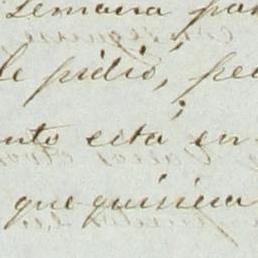 semana pa
le pidió, pe
nto está en
que quisiera